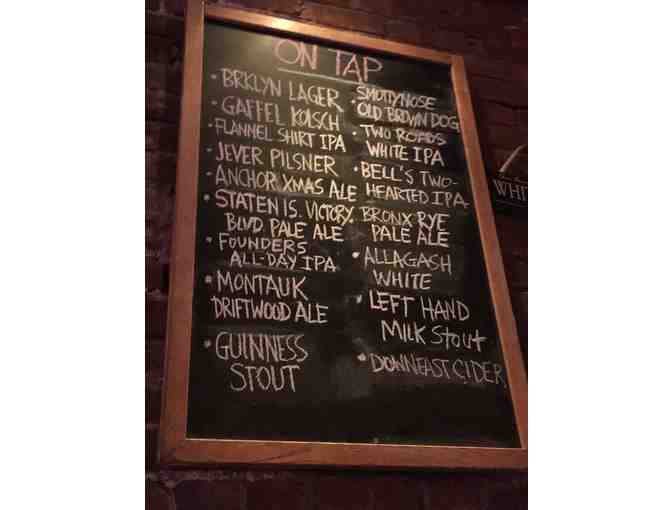 ON TAP
• BRKLYN LAGER
• GAFFEL KOLSCH
• FLANNEL SHIRT IPA
• JEVER PILSNER
• ANCHOR XMAS ALE
• STATEN IS. VICTORY
BLVD. PALE ALE
• FOUNDERS
ALL-DAY IPA
• MONTAUK
DRIFTWOOD ALE
• GUINNESS
STOUT
SMUTTYNOSE
• OLD BROWN DOG
• TWO ROADS
WHITE IPA
• BELL'S TWO-
HEARTED IPA
• BRONX RYE
PALE ALE
• ALLAGASH
WHITE
• LEFT HAND
MILK STOUT
• DOWNEAST CIDER